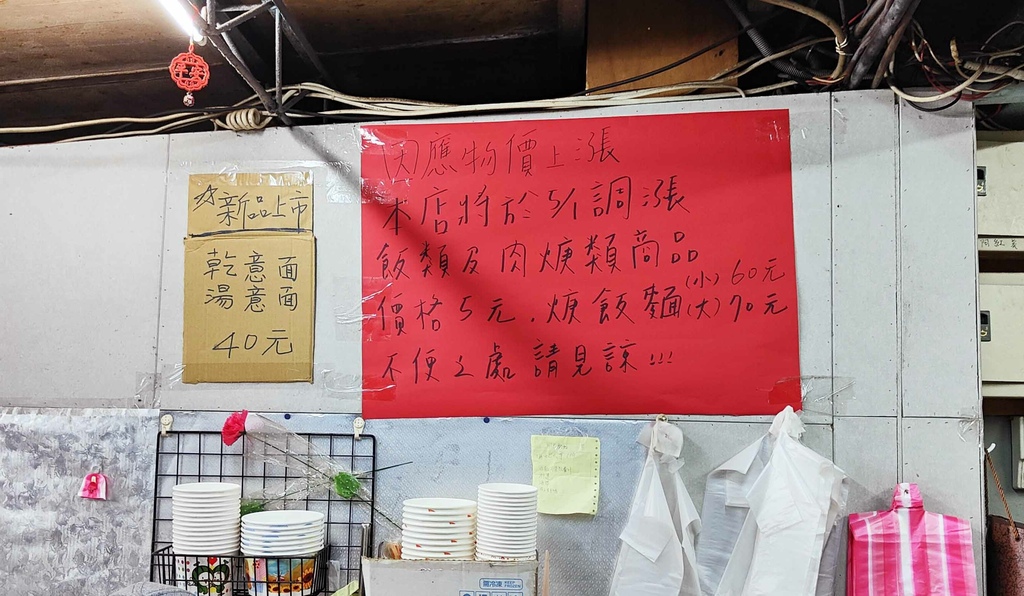 平安
☆新品上市
乾意面
湯意面
40元
因應物價上漲
本店將於5/1調漲
飯類及肉焿類商品
價格5元.焿飯麵(小)60元
(大)70元
不便之處請見諒!!!